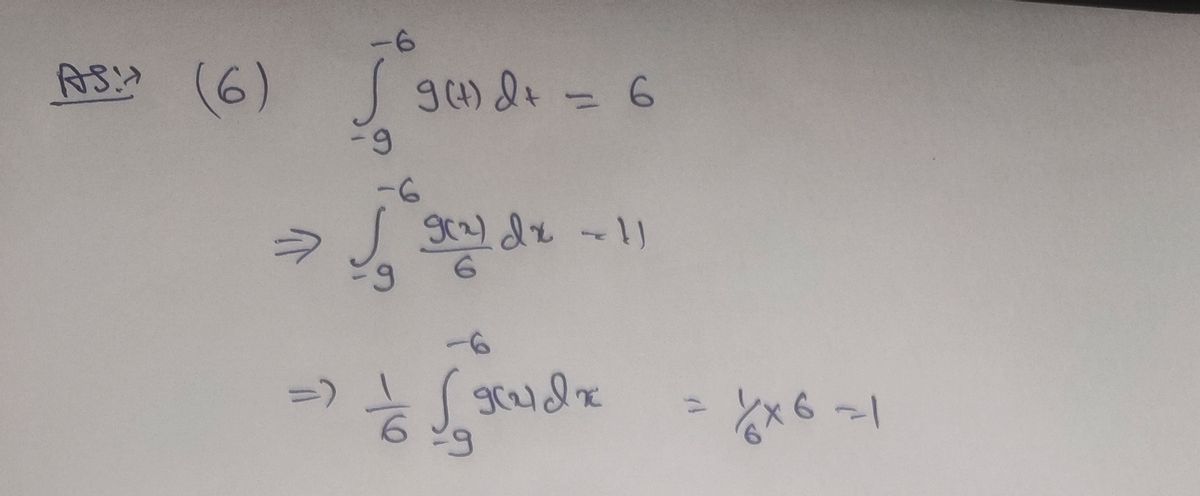 AS:→ (6) ∫_{-9}^{-6} g(t) dt = 6
⇒ ∫_{-9}^{-6} g(x)/6 dx - 11
=> 1/6 ∫_{-9}^{-6} g(x) dx = 1/6 × 6 = 1